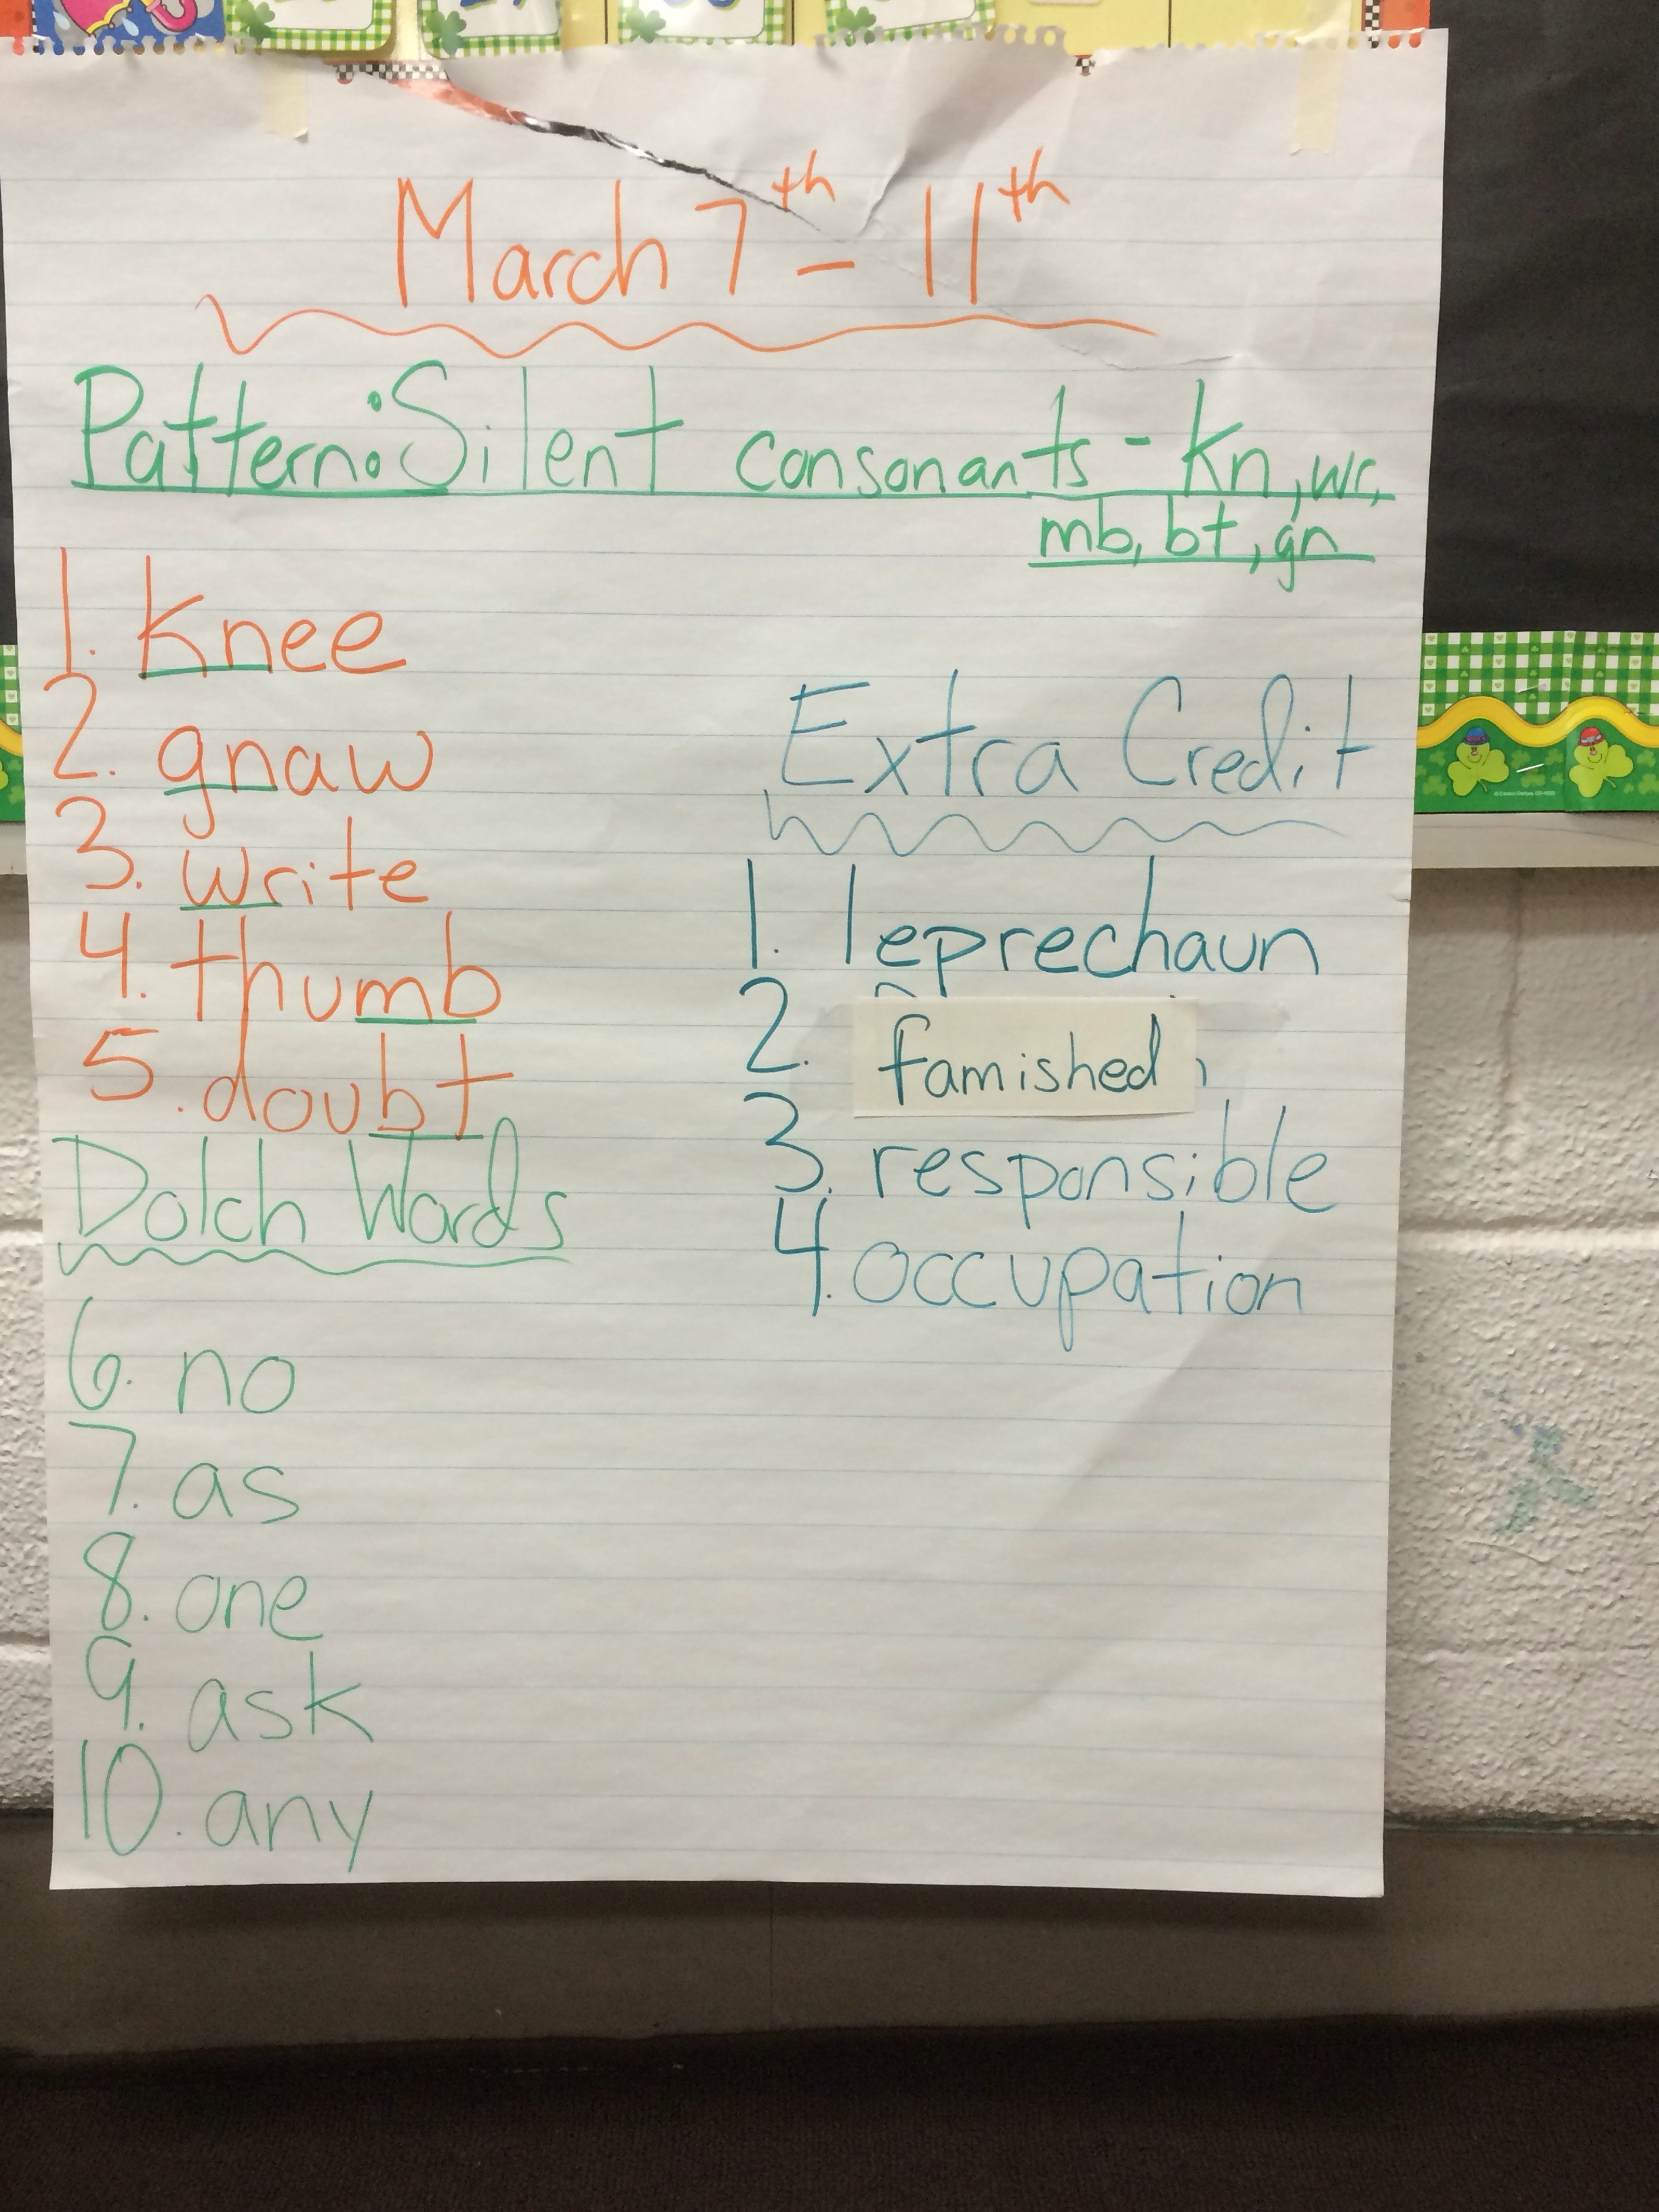 March 7th - 11th
Pattern: Silent consonants - kn, wr,
mb, bt, gn
1. knee
2. gnaw
3. write
4. thumb
5. doubt
Dolch Words
6. no
7. as
8. one
9. ask
10. any
Extra Credit
1. leprechaun
2. famished
3. responsible
4. occupation